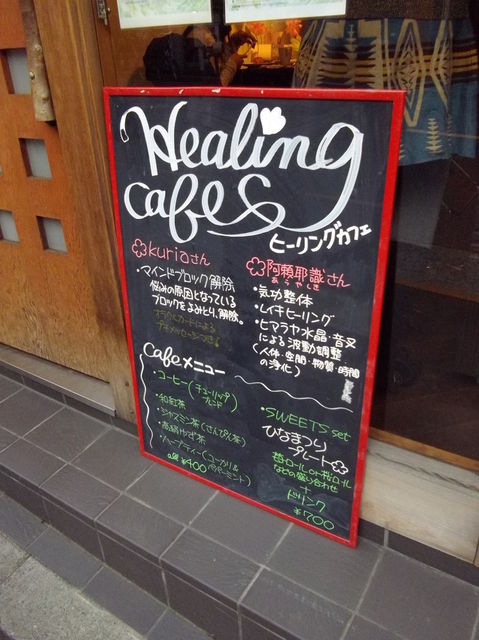 Healing
Cafe
ヒーリングカフェ
kuriaさん
・マインドブロック解除
悩みの原因となっている
ブロックをよみとり、解除。
オラクルカードによる
プチメッセージつき！
阿頼耶識さん
あらやしき
・気功整体
・レイキヒーリング
・ヒマラヤ水晶・音叉
による波動調整
(人体・空間・物質・時間
の浄化)
cafeメニュー
・コーヒー(チューリップ
ブレンド)
・和紅茶
・ジャスミン茶(さんぴん茶)
・高知ゆず茶
・ハーブティー(ユーカリ&
ペパーミント)
¥400
・SWEETS set
ひなまつり
プレート
苺ロールor桜ロール
などの盛り合わせ
+
ドリンク
¥700